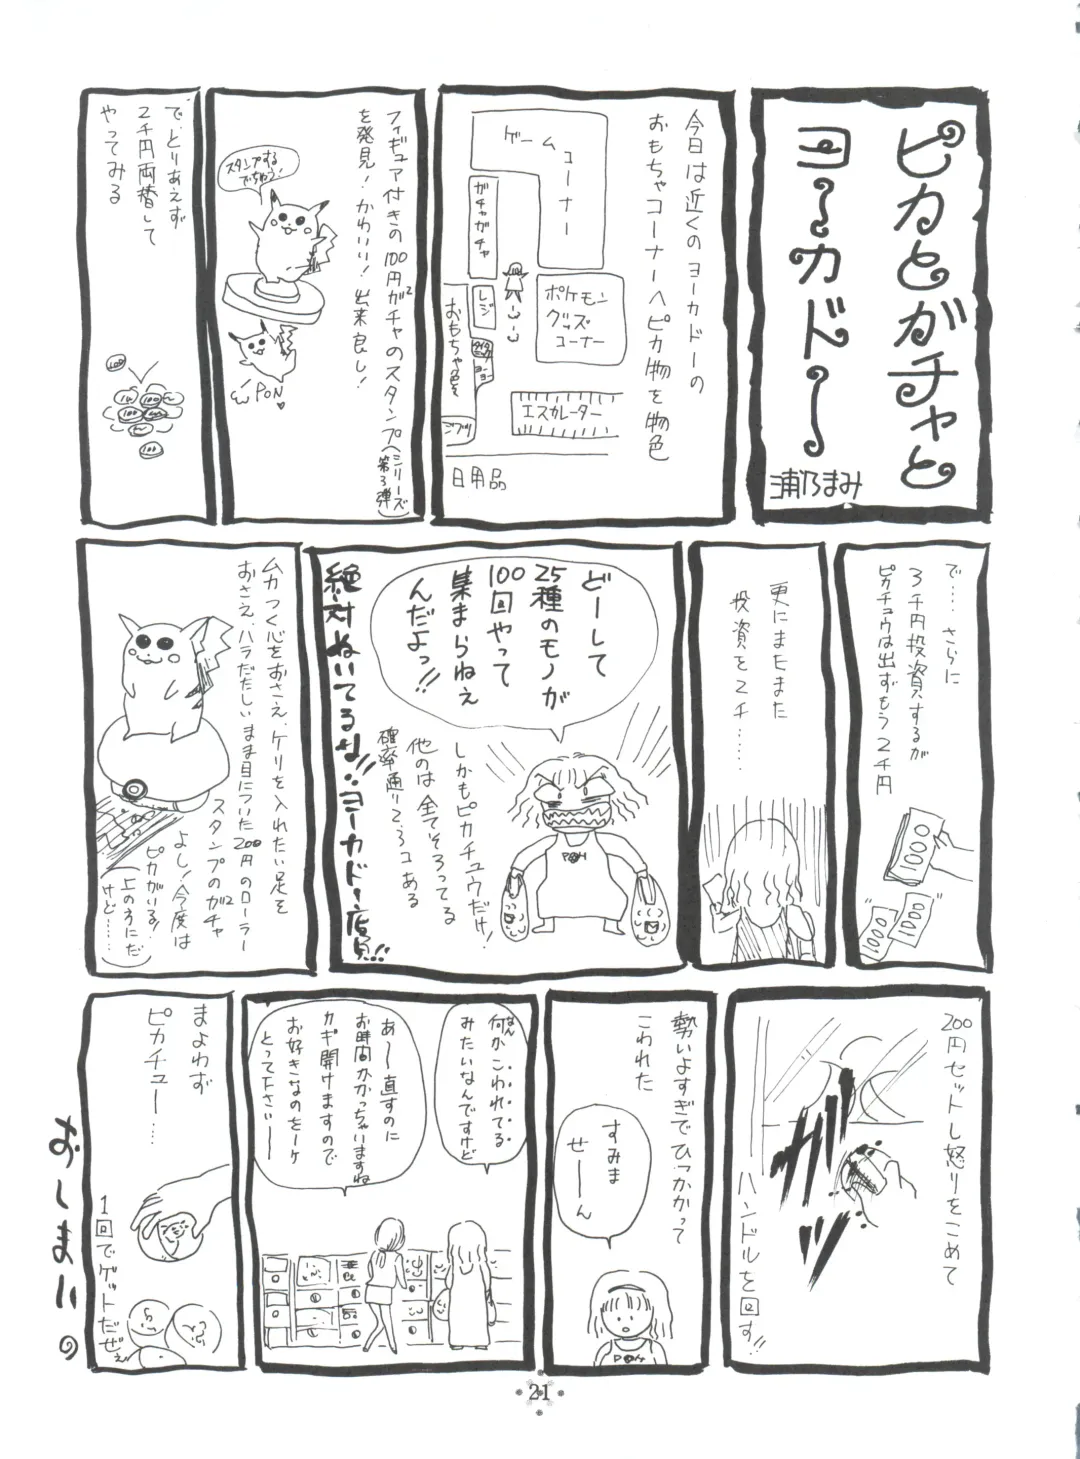 ピカとガチャと
ヨーカドー
浦乃まみ
今日は近くのヨーカドーの
おもちゃコーナーへピカ物を物色
ゲームコーナー
ガチャガチャ
レジ
ポケモン
グッズ
コーナー
おもちゃ色々
エスカレーター
日用品
フィギュア付きの100円ガチャのスタンプ(シリーズ第3弾)
を発見!かわいい!出来良し!
スタンプする
でちゅう!
PON
で、とりあえず
2千円両替して
やってみる
100
100
100
100
で…、さらに
3千円投資するが
ピカチュウは出ずもう2千円
1000
1000
1000
更にまたまた
投資を2千……
どーして
25種のモノが
100回やって
集まらねえ
んだよっ!!
しかもピカチュウだけ!
他のは全てそろってる
確率通り2〜3コある
絶対ぬいてるな!!ヨーカドー店員!!
ムカつく心をおさえ、ケリを入れたい足を
おさえ、ハラだたしいまま目についた200円のローラー
スタンプのガチャ
よし!今度は
ピカがいる!
(上の方にだ
けど……)
200円セットし怒りをこめて
ハンドルを回す!!
ガガッ
勢いよすぎでひっかかって
こわれた
すみま
せーーん
何かこわれてる
なん
みたいなんですけど
あ〜直すのに
お時間かかっちゃいますね
カギ開けますので
お好きなのをーケ
とって下さいーー
まよわず
ピカチュー……
1回でゲットだぜぇ
おしまい。
21